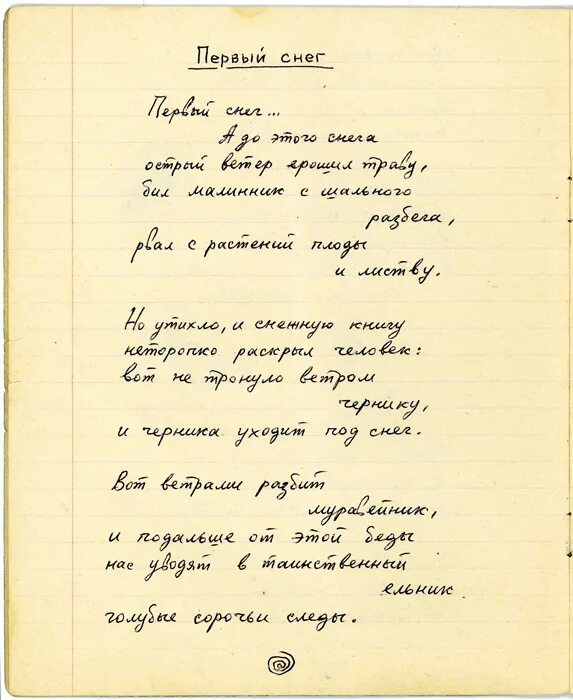 Первый снег
Первый снег...
А до этого снега
острый ветер ерошил траву,
бил малинник с шального
разбега,
рвал с растений плоды
и листву.
Но утихло, и снежную книгу
неторопко раскрыл человек:
вот не тронуло ветром
чернику,
и черника уходит под снег.
Вот ветрами разбит
муравейник,
и подальше от этой беды
нас уводят в таинственный
ельник
голубые сорочьи следы.